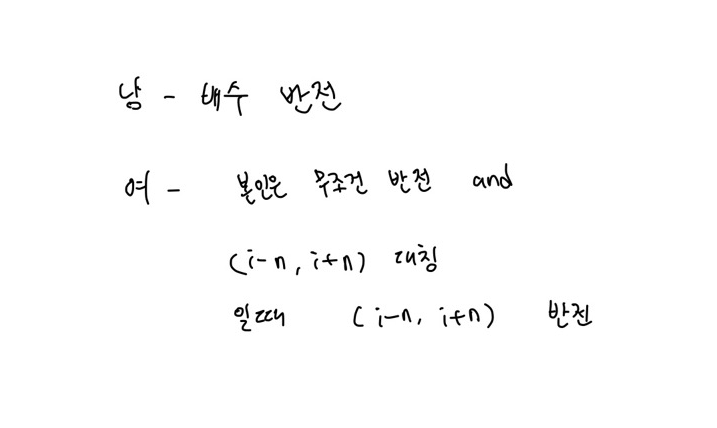 냥 - 배수 반전
여 - 본인은 무조건 반전 and
(i-n, i+n) 대칭
일때 (i-n, i+n) 반전